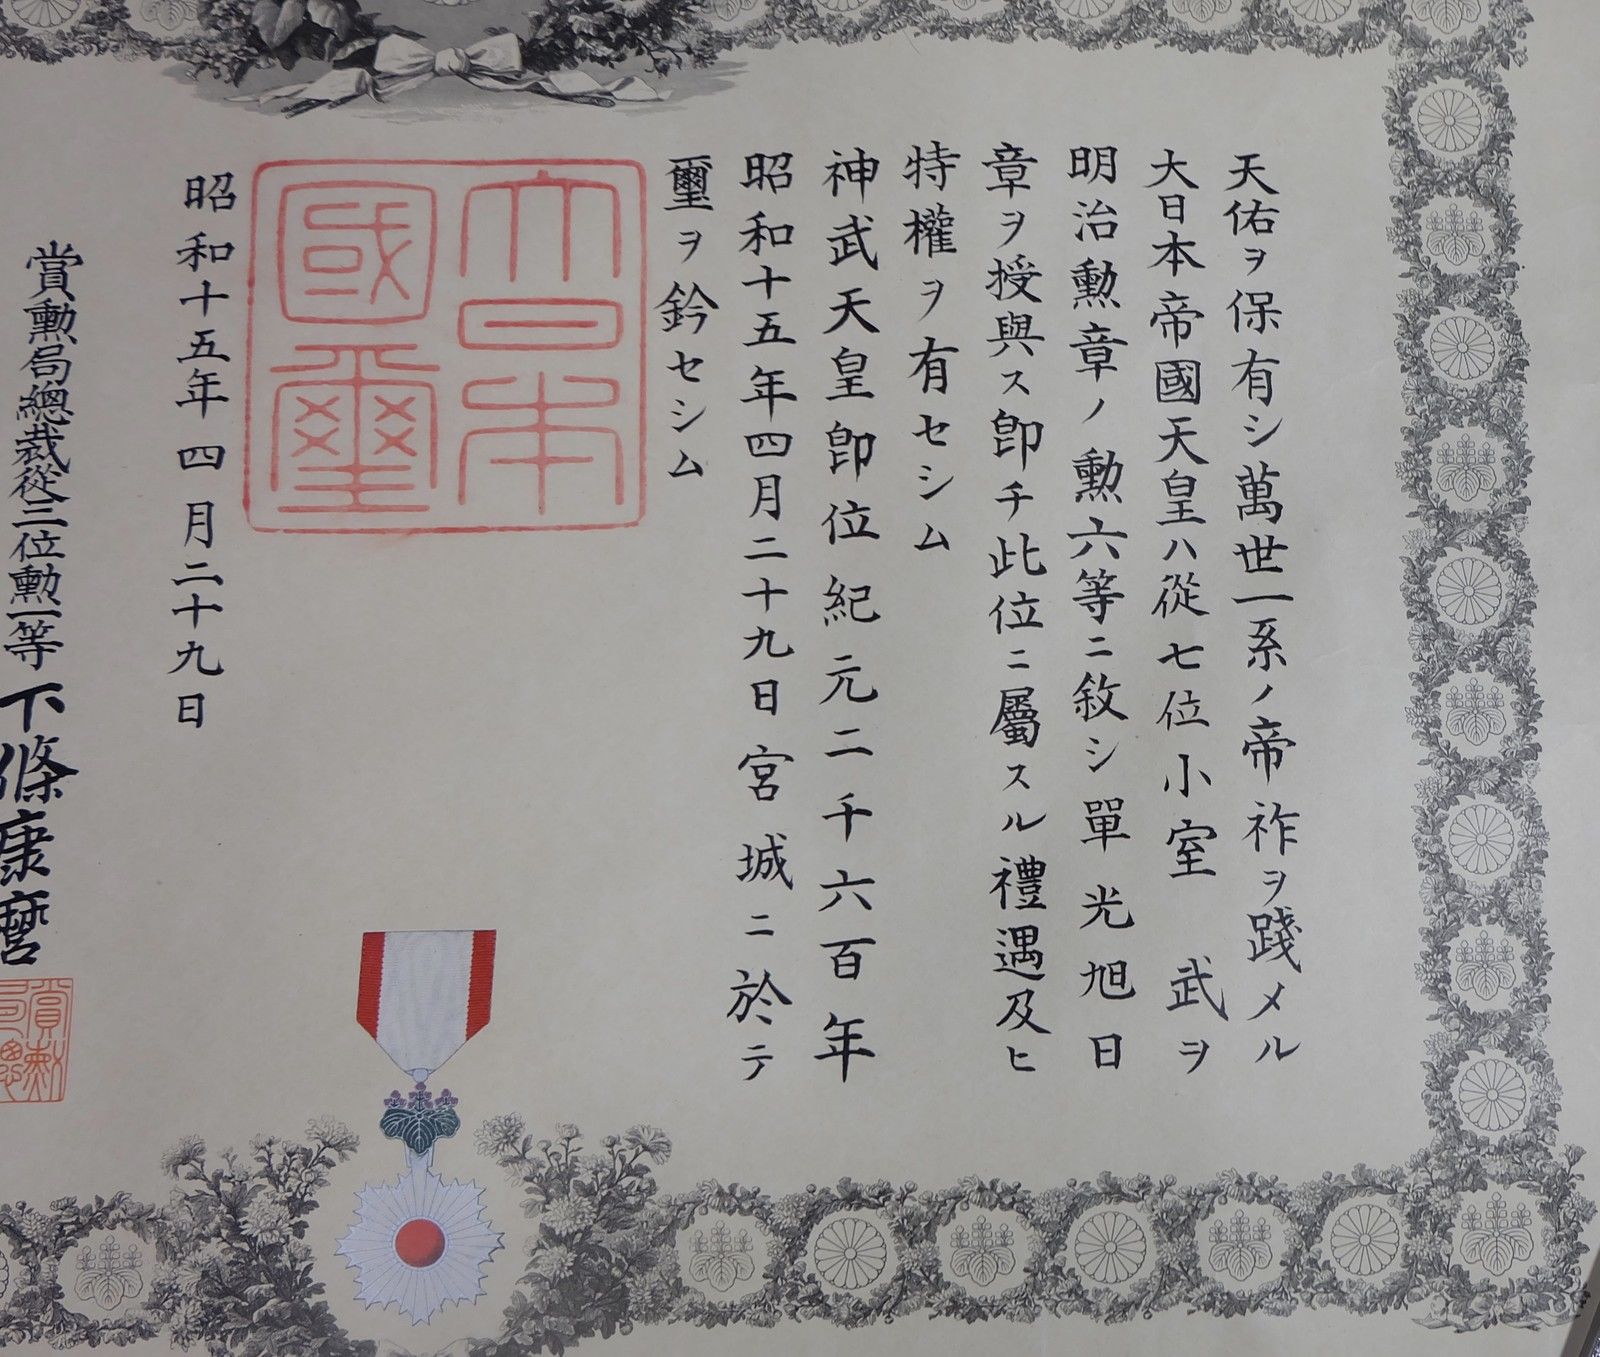 天佑ヲ保有シ萬世一系ノ帝祚ヲ踐メル
大日本帝國天皇ハ從七位小室武ヲ
明治勲章ノ勲六等ニ敘シ單光旭日
章ヲ授與ス卽チ此位ニ屬スル禮遇及ヒ
特權ヲ有セシム
神武天皇卽位紀元二千六百年
昭和十五年四月二十九日宮城ニ於テ
璽ヲ鈐セシム
大日本
國璽
昭和十五年四月二十九日
賞勲局總裁從三位勲一等下條康麿